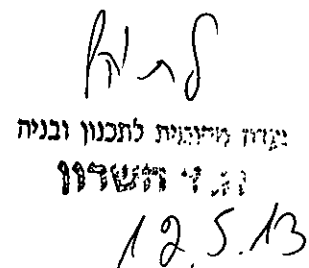 לתיק
ועדה מקומית לתכנון ובניה
השרון
12.5.13